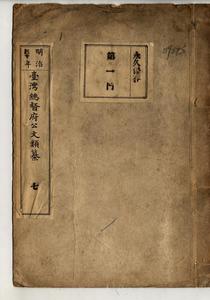 永久保存
第一門
明治
臺灣總督府公文類纂
七